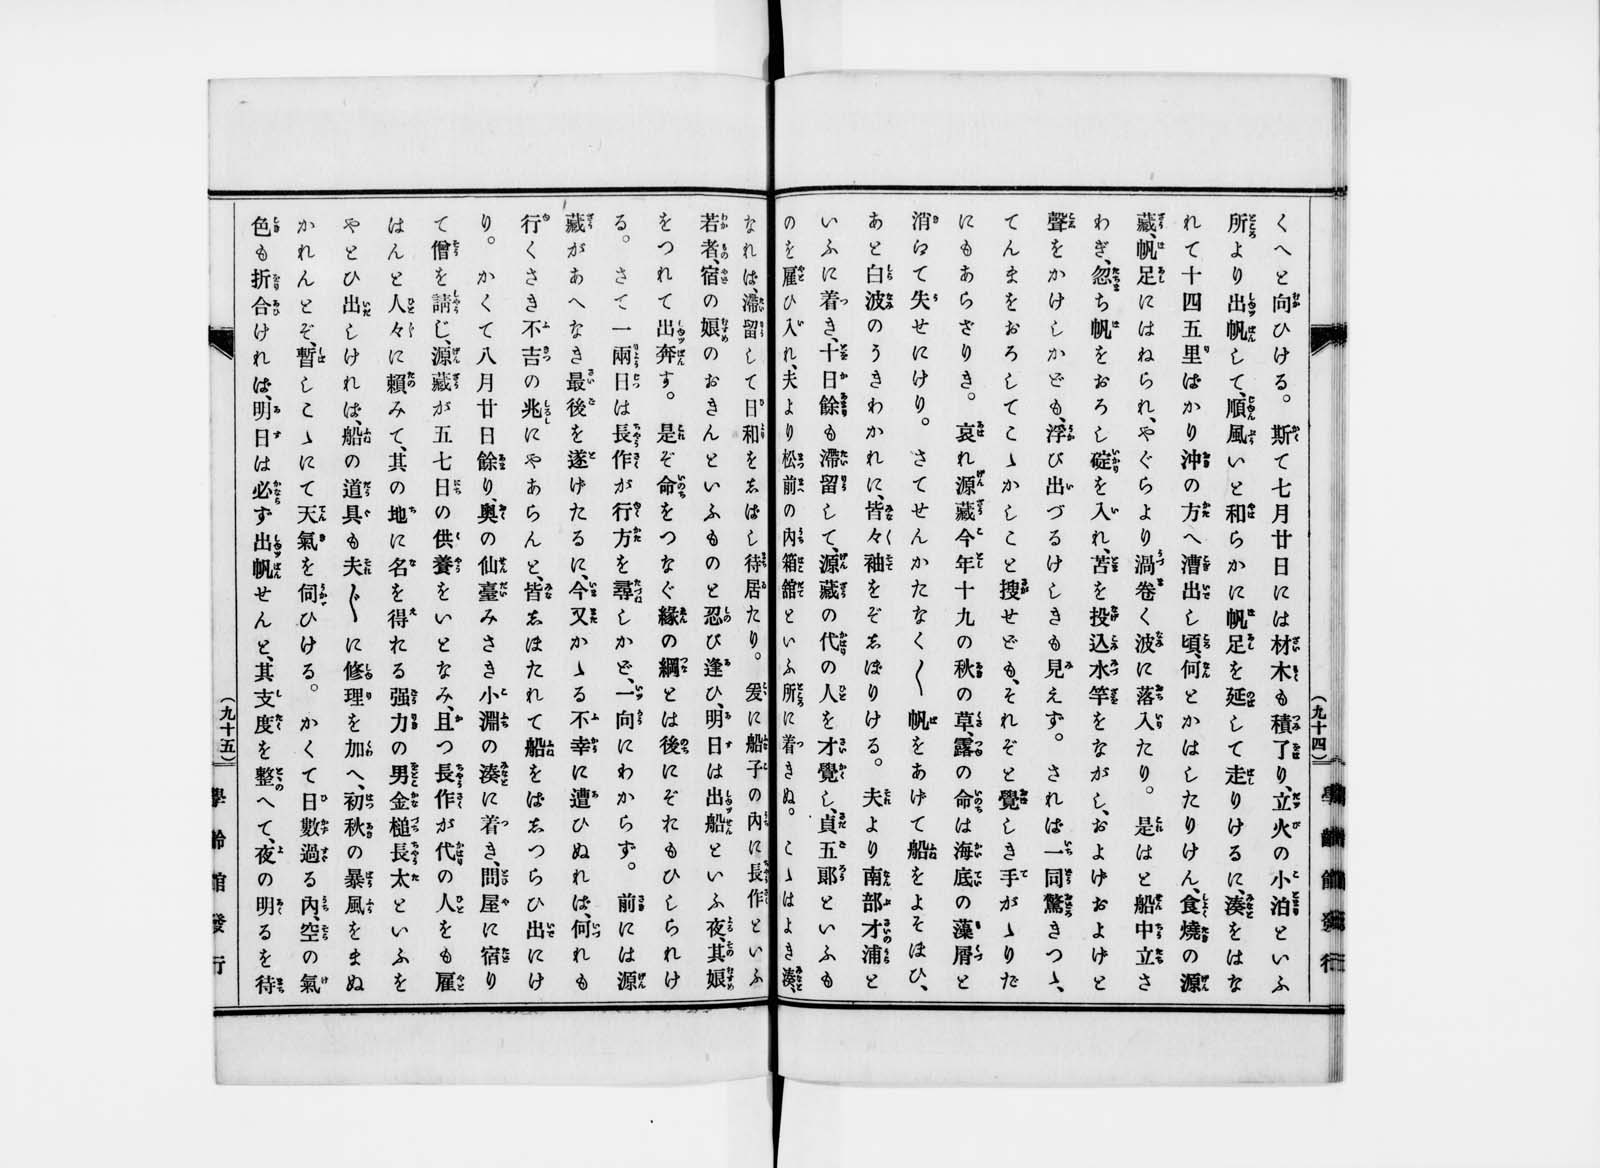 くへと向ひける。斯て七月廿日には材木も積了り、立火の小泊といふ
所より出帆して、順風いと和らかに帆足を延して走りけるに、湊をはな
れて十四五里ばかり沖の方へ漕出し頃、何とかはしたりけん、食燒の源
藏、帆足にはねられ、やぐらより渦卷く波に落入たり。是はと船中立さ
わぎ、忽ち帆をおろし碇を入れ、苫を投込水竿をながし、およげおよげと
聲をかけしかども、浮び出づるけしきも見えず。されば一同驚きつゝ、
てんまをおろしてこゝかしこと搜せども、それぞと覺しき手がゝりだ
にもあらざりき。哀れ源藏今年十九の秋の草、露の命は海底の藻屑と
消はて失せにけり。さてせんかたなく〳〵帆をあげて船をよそほひ、
あと白波のうきわかれに、皆々袖をぞゑぼりける。夫より南部才浦と
いふに着き、十日餘も滯留して、源藏の代の人を才覺し、貞五郎といふも
のを雇ひ入れ、夫より松前の內箱舘といふ所に着きぬ。こゝはよき湊、
(九十四)
なれば、滯留して日和をゑばし待居たり。爰に船子の內に長作といふ
若者、宿の娘のおきんといふものと忍び逢ひ、明日は出船といふ夜、其娘
をつれて出奔す。是ぞ命をつなぐ緣の綱とは後にぞれもひしられけ
る。さて一兩日は長作が行方を尋しかど、一向にわからず。前には源
藏があへなき最後を遂げたるに、今又かゝる不幸に遭ひぬれば、何れも
行くさき不吉の兆にやあらんと、皆ゑほたれて船をばゑつらひ出にけ
り。かくて八月廿日餘り、奧の仙臺みさき小淵の湊に着き、問屋に宿り
て僧を請じ、源藏が五七日の供養をいとなみ、且つ長作が代の人をも雇
はんと人々に賴みて、其の地に名を得れる强力の男金槌長太といふを
やとひ出しければ、船の道具も夫〴〵に修理を加へ、初秋の暴風をまぬ
かれんとぞ、暫しこゝにて天氣を伺ひける。かくて日數過る內、空の氣
色も折合ければ、明日は必ず出帆せんと、其支度を整へて、夜の明るを待
(九十五)
學齡館發行